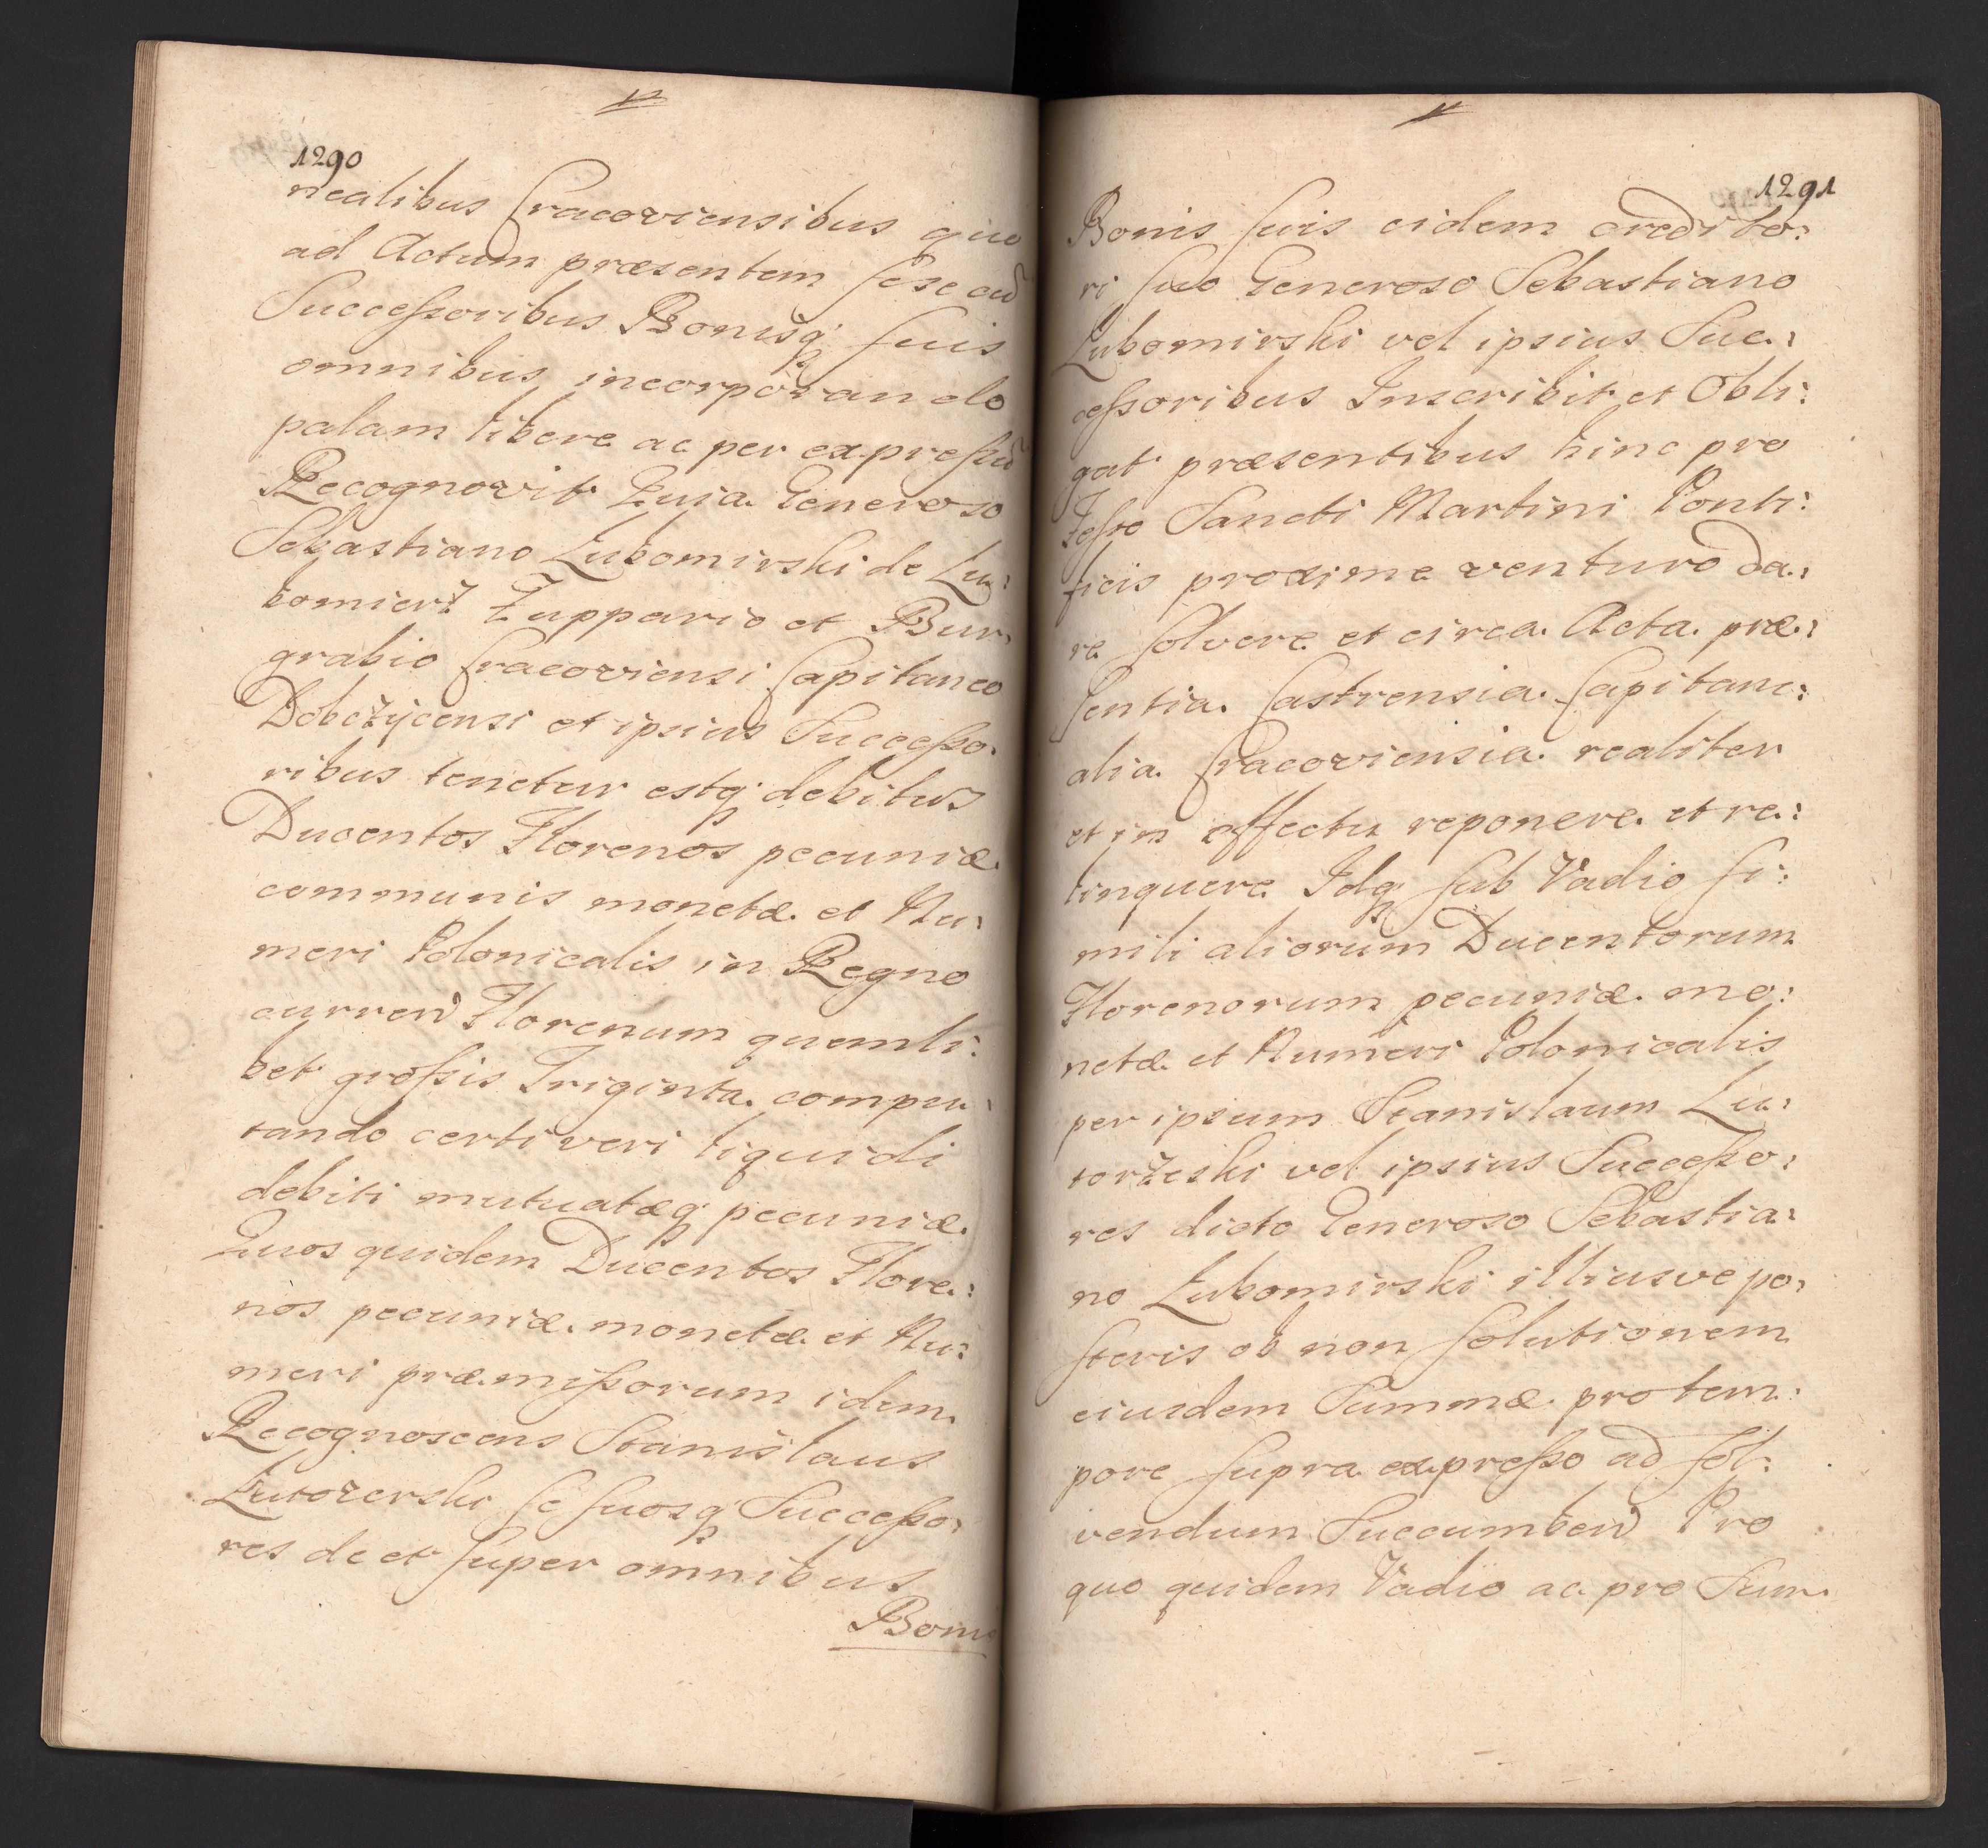 1290
nealibus Cracoviensibus quo
ad Actum præsentem sese cũ
Successoribus Bonisq; suis
omnibus incorporando
palam libere ac per expressũ
Recognovit Quia Generoso
Sebastiano Lubomirski de Lu:
bomierz Zuppario et Bur:
grabio Cracoviensi Capitaneo
Dobczÿcensi et ipsius Successo:
ribus tenetur estq; debitus
Ducentos Florenos pecuniæ
communis monetæ et Nu:
meri Polonicalis in Regno
curren Florenum quemli:
bet grossis Triginta compu:
tando certi veri liquidi
debiti mutuatæq; pecuniæ
Quos quidem Ducentos Flore:
nos pecuniæ monetæ et Nu:
meri præmissorum idem
Recognoscens Stanislaus
Lutozerski se suosq; Successo:
res de et super omnibus
Boni
1291
Bonis suis eidem credito:
ri suo Generoso Sebastiano
Lubomirski vel ipsius Suc:
cessoribus Inscribit et Obli:
gat præsentibus hinc pro
Festo Sancti Martini Ponti:
ficis proxime venturo Da:
re solvere et circa Acta præ:
sentia Castrensia Capitane:
alia Cracoviensia realiter
et in effectu reponere et re:
linquere Idq; sub Vadio si:
mili aliorum Ducentorum
Florenorum pecuniæ mo:
netæ et Numeri Polonicalis
per ipsum Stanislaum Lu:
torzeski vel ipsius Successo:
res dicto Generoso Sebastia:
no Lubomirski illiusve po:
steris ob non solutionem
eiusdem Summæ pro tem:
pore supra expresso ad sol:
vendum Succumben Pro
quo quidem Vadio ac pro Sum: